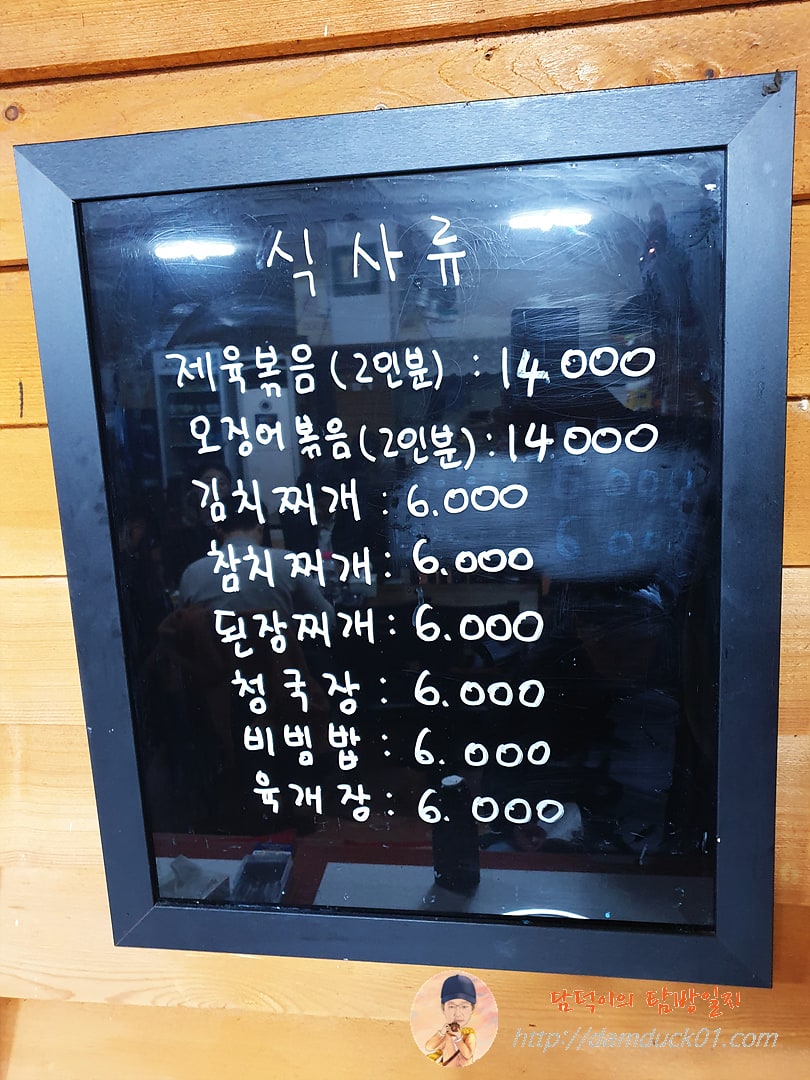 식사류
제육볶음(2인분) : 14000
오징어볶음(2인분) : 14000
김치찌개 : 6.000
참치찌개 : 6.000
된장찌개 : 6.000
청국장 : 6.000
비빔밥 : 6.000
육개장 : 6.000
담덕이의 탐방일지
http://damduck01.com